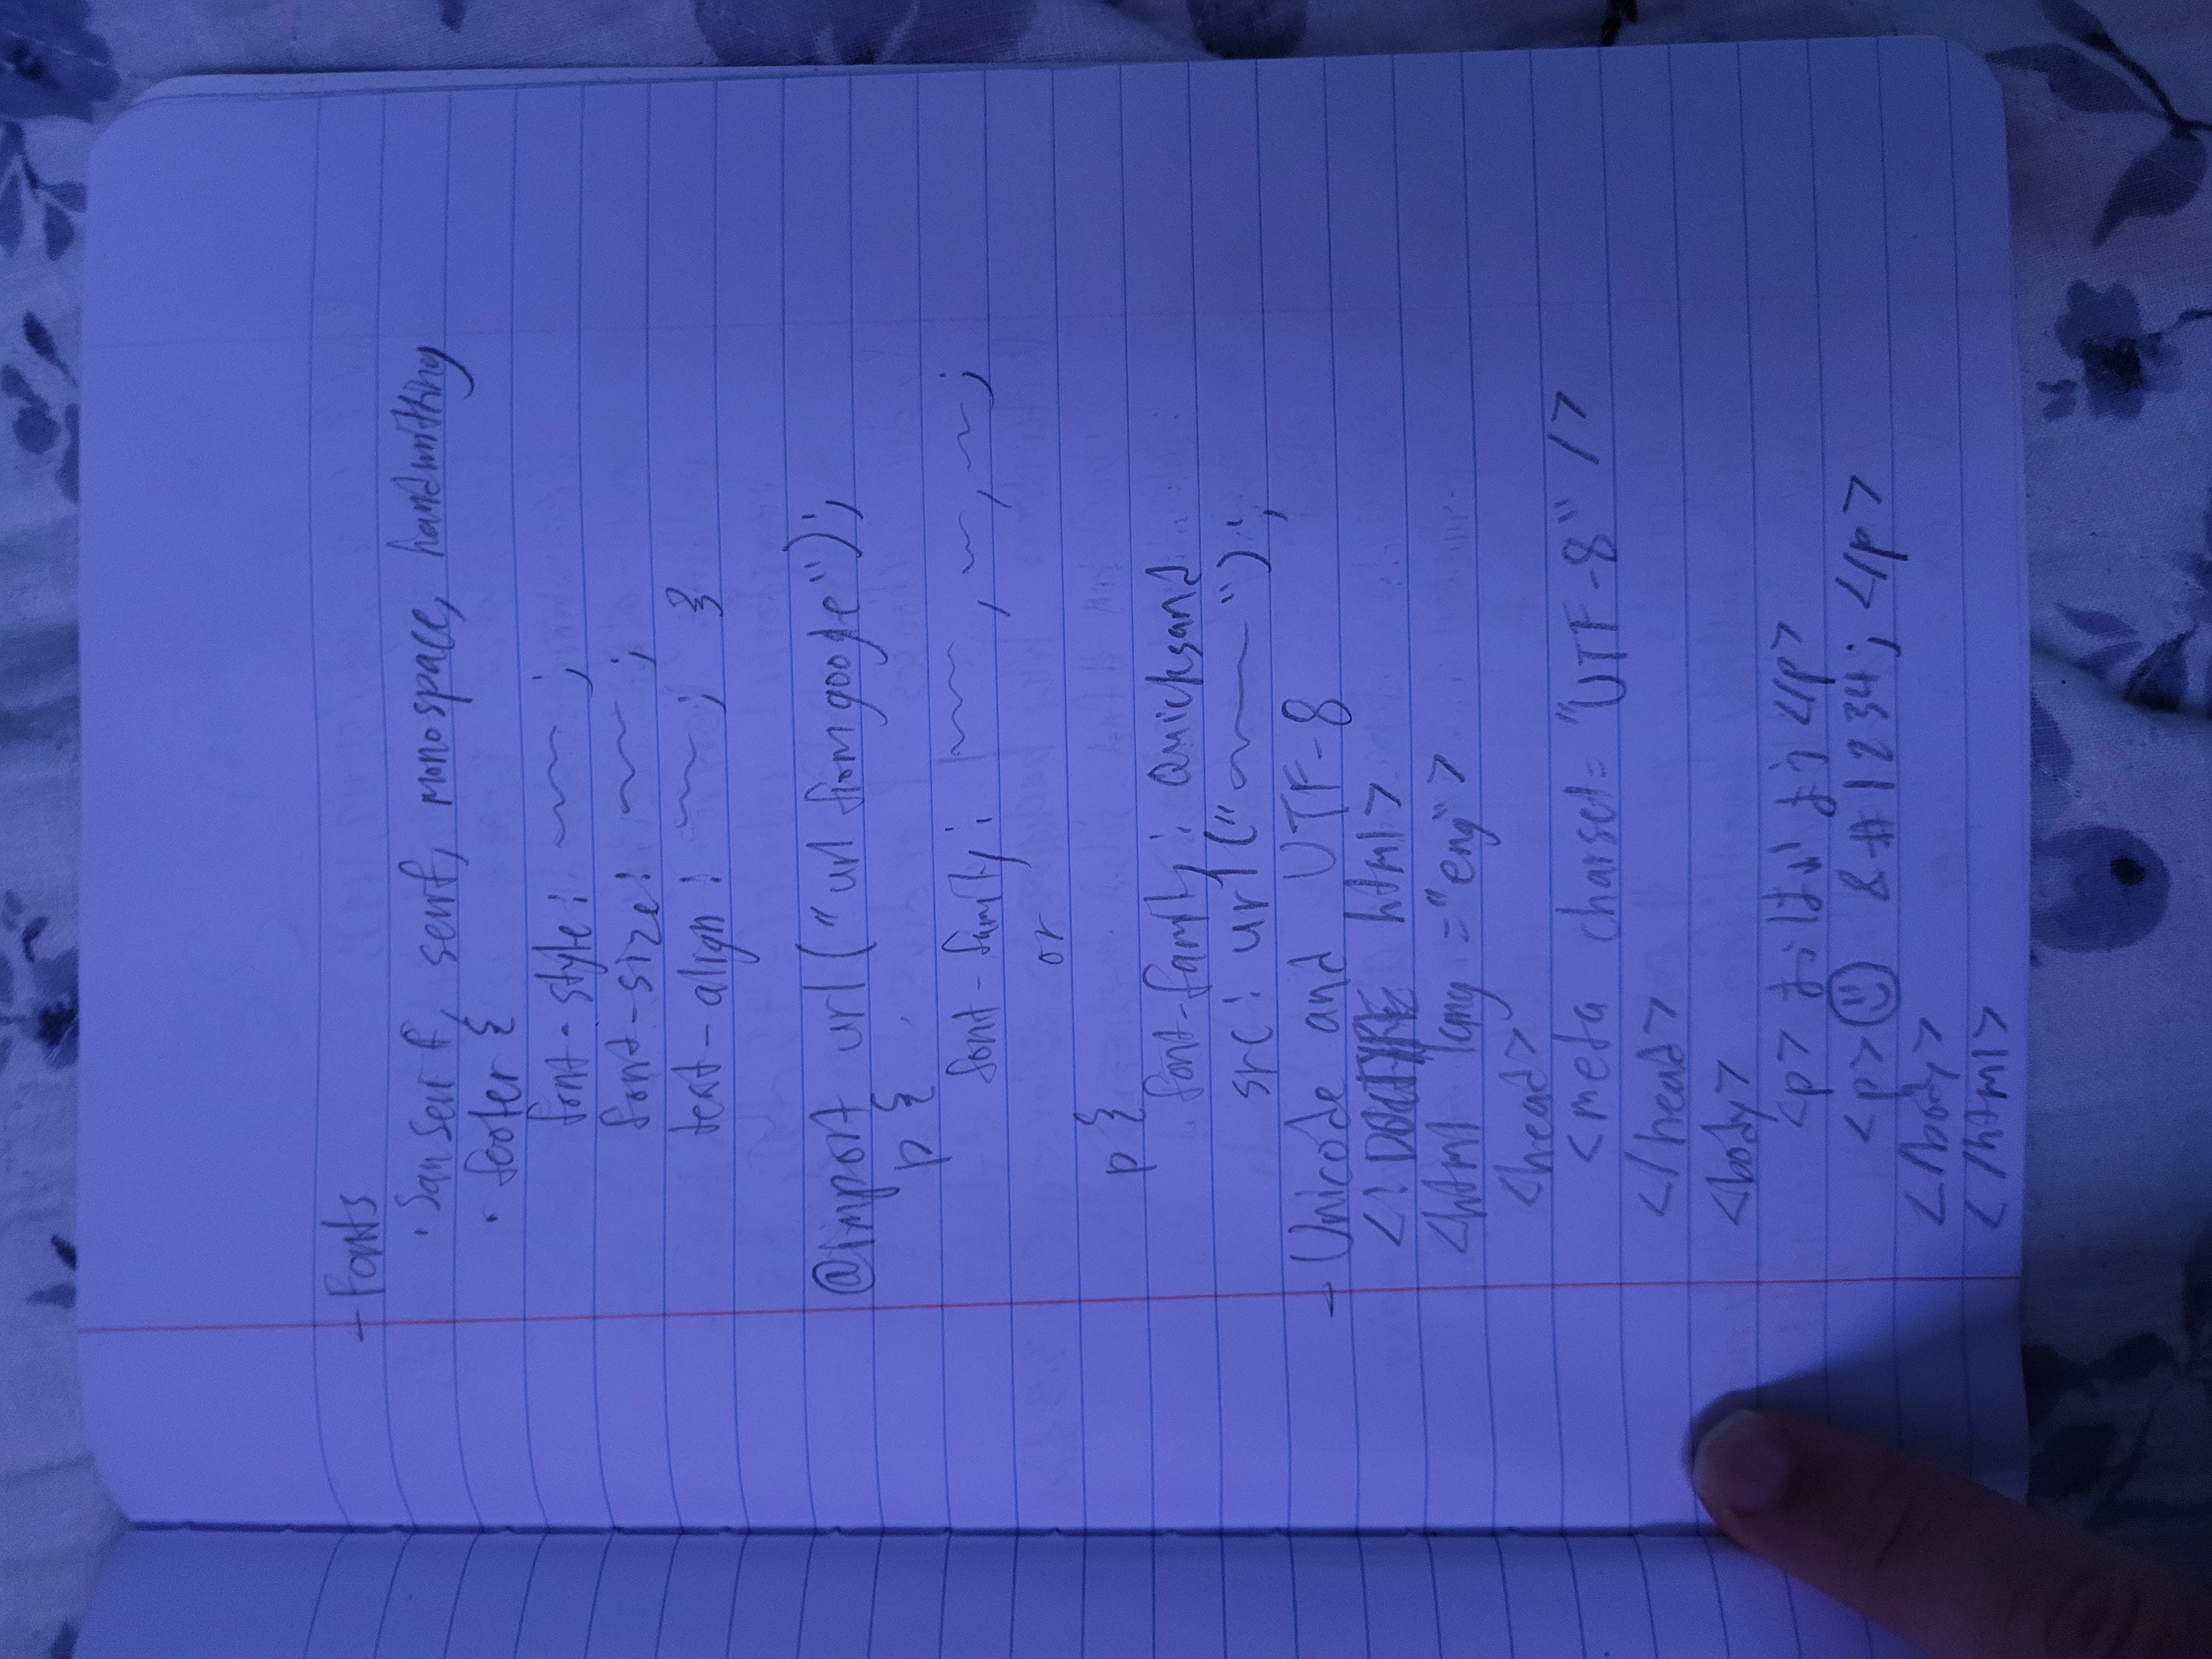 - Fonts
· San Serif, serif, monospace, handwriting
· footer {
font-style: ~~~ ;
font-size: ~~~ ;
text-align: ~~~ ; }
@import url("url from google");
p {
font-family: ~~~ , ~~ , ~~ ;
or
p {
font-family: Quicksand
src: url("~~~");
- Unicode and UTF-8
<!DOCTYPE html>
<html lang="eng">
<head>
<meta charset="UTF-8" />
</head>
<body>
<p> </p>
<p>☺ &#1234; </p>
</body>
</html>